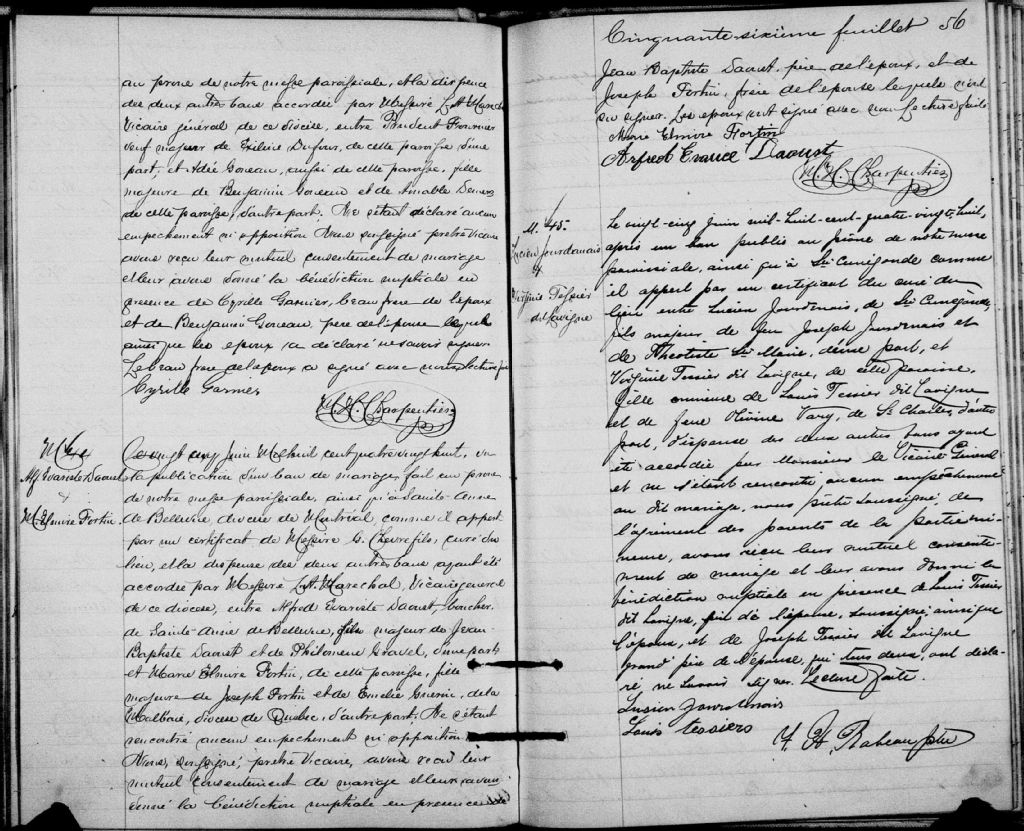 au prone de notre messe paroissiale, et la dispense
des deux autres bans accordée par Messire L. A. Marechal
Vicaire général de ce diocèse, entre Prudent Fournier
veuf majeur de Exilire Dufour, de cette paroisse d'une
part, et Adée Goreau, aussi de cette paroisse, fille
majeure de Benjamin Goreau et de Amable Demers
de cette paroisse, d'autre part; Ne s'étant déclaré aucun
empechement ni opposition Nous soussigné pretre Vicaire
avons reçu leur mutuel consentement de mariage
et leur avons donné la bénédiction nuptiale en
presence de Cyrille Garnier, beau frere de l'epoux
et de Benjamin Goreau, pere de l'épouse lequel
ainsi que les epoux a déclaré ne savoir signer
Le beau frere de l'epoux a signé avec nous. Lecture faite
Cyrille Garnier
M. H. Charpentier
M 44
Alf. Evariste Daoust
+
M. Elmire Fortin
Ce vingt cinq Juin Mil huit cent quatre vingt huit, vu
la publication d'un ban de mariage, fait au prone
de notre messe paroissiale, ainsi qu'à Sainte Anne
de Bellevue, diocèse de Montréal, comme il appert
par un certificat de Messire G. Chevrefils, curé du
lieu, et la dispense des deux autres bans ayant été
accordée par Messire L. A. Marechal, Vicaire général
de ce diocèse, entre Alfred Evariste Daoust boucher,
de Sainte Anne de Bellevue, fils majeur de Jean-
Baptiste Daoust et de Philomene Gravel, d'une part;
et Marie Elmire Fortin, de cette paroisse, fille
majeure de Joseph Fortin et de Emelie Guerin, de la
Malbaie, diocèse de Quebec, d'autre part; Ne s'étant
rencontré aucun empechement ni opposition
Nous, soussigné, pretre Vicaire, avons reçu leur
mutuel consentement de mariage et leur avons
donné la bénédiction nuptiale en presence de
Cinquante-sixième feuillet 56
Jean Baptiste Daoust, père de l'epoux, et de
Joseph Fortin, frère de l'epouse lesquels n'ont
su signer. Les epoux ont signé avec nous Lecture faite
Marie Elmire Fortin
Arfred Evarice Daoust
M. H. Charpentier
M. 45.
Lucien Jourdannais
&
Virginie Tessier
dit Lavigne
Le vingt-cinq Juin mil-huit-cent-quatre-vingt-huit,
après un ban publié au prône de notre messe
paroissiale, ainsi qu'à Ste Cunégonde comme
il appert par un certificat du curé du
lieu entre Lucien Jourdenais, de Ste Cunégonde,
fils majeur de feu Joseph Jourdenais et
de Théotiste Ste Marie, d'une part, et
Virginie Tessier dit Lavigne, de cette paroisse,
fille mineure de Louis Tessier dit Lavigne
et de feue Olivine Vary, de St Charles, d'autre
part, dispense des deux autres bans ayant
été accordée par Monsieur le Vicaire Général
et ne s'étant rencontré aucun empêchement
au dit mariage, nous prêtre soussigné, de
l'agrément des parents de la partie mi-
neure, avons reçu leur mutuel consente-
ment de mariage et leur avons donné la
bénédiction nuptiale en présence de Louis Tessier
dit Lavigne, père de l'épouse, soussigné, ainsi que
l'époux, et de Joseph Tessier dit Lavigne
grand père de l'épouse, qui tous deux, ont décla-
ré ne savoir signer. Lecture faite.
Lusien Jourdenais
Louis tessiers
Y. H. Rabeau ptre